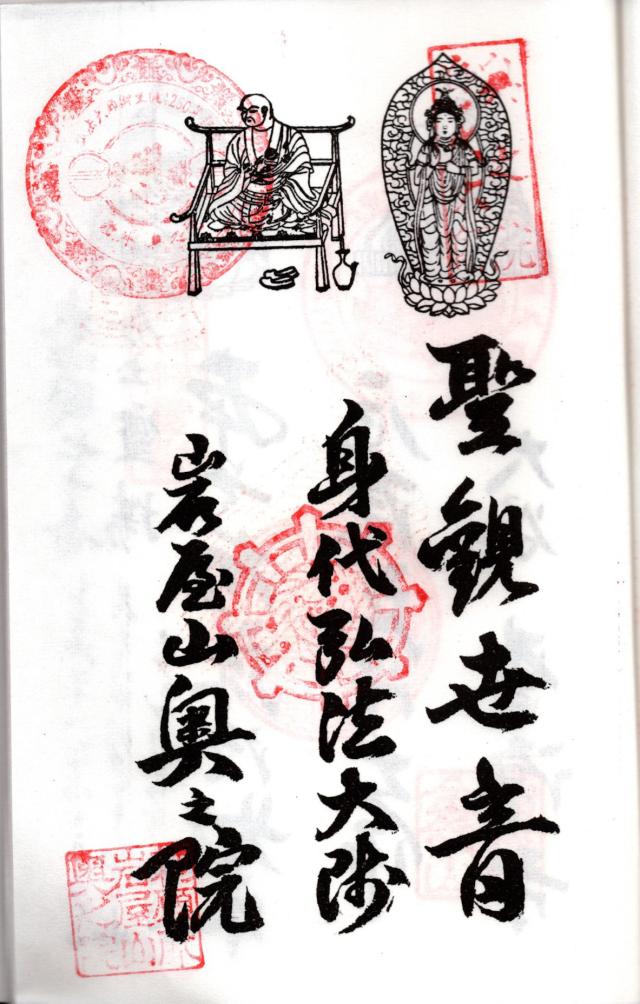 聖観世音
身代弘法大師
岩屋山奥之院